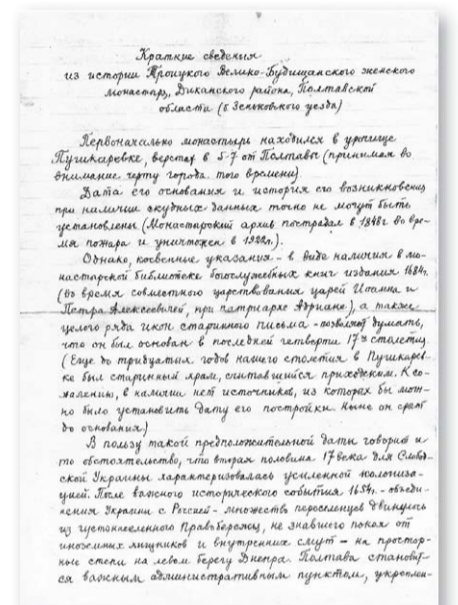 Краткие сведения
из истории Троицкого Велико-Будищанского женского
монастыря, Диканского района, Полтавской
области (б. Зеньковского уезда)
Первоначально монастырь находился в урочище
Пушкаревке, верстах в 5-7 от Полтавы (принимая во
внимание черту города того времени).
Дата его основания и история его возникновения
при наличии скудных данных точно не могут быть
установлены (Монастырский архив пострадал в 1848г. во вре-
мя пожара и уничтожен в 1922г.).
Однако, косвенные указания - в виде наличия в мо-
настырской библиотеке богослужебных книг издания 1684г.
(во время совместного царствования царей Иоанна и
Петра Алексеевичей, при патриархе Адриане), а также
целого ряда икон старинного письма - позволяют думать,
что он был основан в последней четверти 17го столетия
(Еще до тридцатых годов нашего столетия в Пушкарев-
ке был старинный храм, считавшийся приходским. К со-
жалению, в наличии нет источников, из которых бы мож-
но было установить дату его постройки. Ныне он срыт
до основания)
В пользу такой предположительной даты говорит и
то обстоятельство, что вторая половина 17 века для Слобод-
ской Украины характеризовалась усиленной колониза-
цией. После важного исторического события 1654г. - объеди-
нения Украины с Россией - множество переселенцев двинулось
из густонаселенного Правобережья, не знавшего покоя от
иноземных хищников и внутренних смут - на простор-
ные степи на левом берегу Днепра. Полтава становит-
ся важным административным пунктом, укреплен-